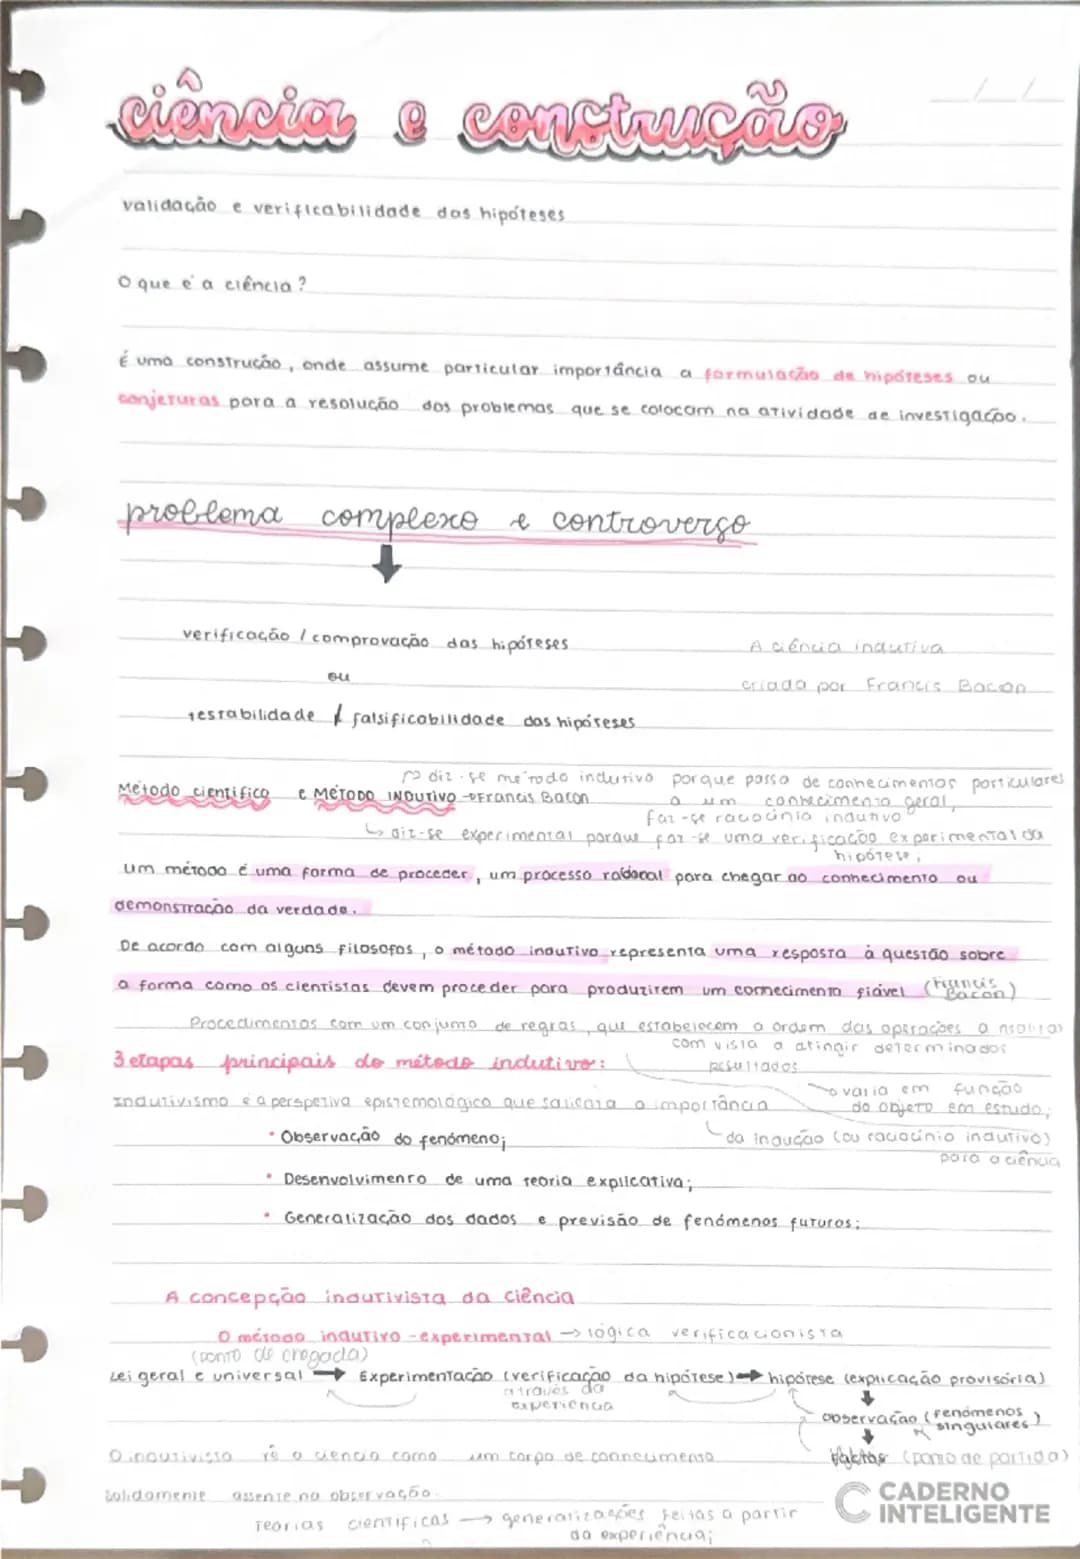 ciência e construção
validação e verificabilidade das hipóteses
O que é a ciência?
É uma construção, onde assume particular importância a formulação de hipóteses ou
conjeturas para a resolução dos problemas que se colocam na atividade de investigação.
problema complexo e controverso
verificação / comprovação das hipóteses
ou
testabilidade / falsificabilidade das hipóteses
A ciência indutiva
criada por Francis Bacon
diz-se método indutivo porque passa de conhecimentos particulares
a um conhecimento geral,
faz-se raciocínio indutivo
Método científico e MÉTODO INDUTIVO → Francis Bacon
diz-se experimental porque faz-se uma verificação experimental da
hipótese,
um método é uma forma de proceder, um processo racional para chegar ao conhecimento ou
demonstração da verdade.
De acordo com alguns filosofos, o método indutivo representa uma resposta à questão sobre
a forma como os cientistas devem proceder para produzirem um conhecimento fiável (Francis Bacon)
Procedimentos com um conjunto de regras, que estabelecem a ordem das operações a
com vista a atingir determinados
resultados
3 etapas principais do método indutivo:
varia em função
do objeto em estudo;
Indutivismo é a perspetiva epistemológica que salienta a importância
da indução (ou raciocínio indutivo)
para a ciência
• Observação do fenómeno;
• Desenvolvimento de uma teoria explicativa;
• Generalização dos dados e previsão de fenómenos futuros;
A concepção indutivista da ciência
O método indutivo-experimental → lógica verificacionista
(ponto de chegada)
Lei geral e universal → Experimentação (verificação da hipótese) → hipótese (explicação provisória)
através da
experiência
observação (fenómenos singulares)
factos (ponto de partida)
O indutivista vê a ciência como um corpo de conhecimento
solidamente assente na observação.
Teorias científicas → generalizações feitas a partir
da experiência;
CADERNO
INTELIGENTE